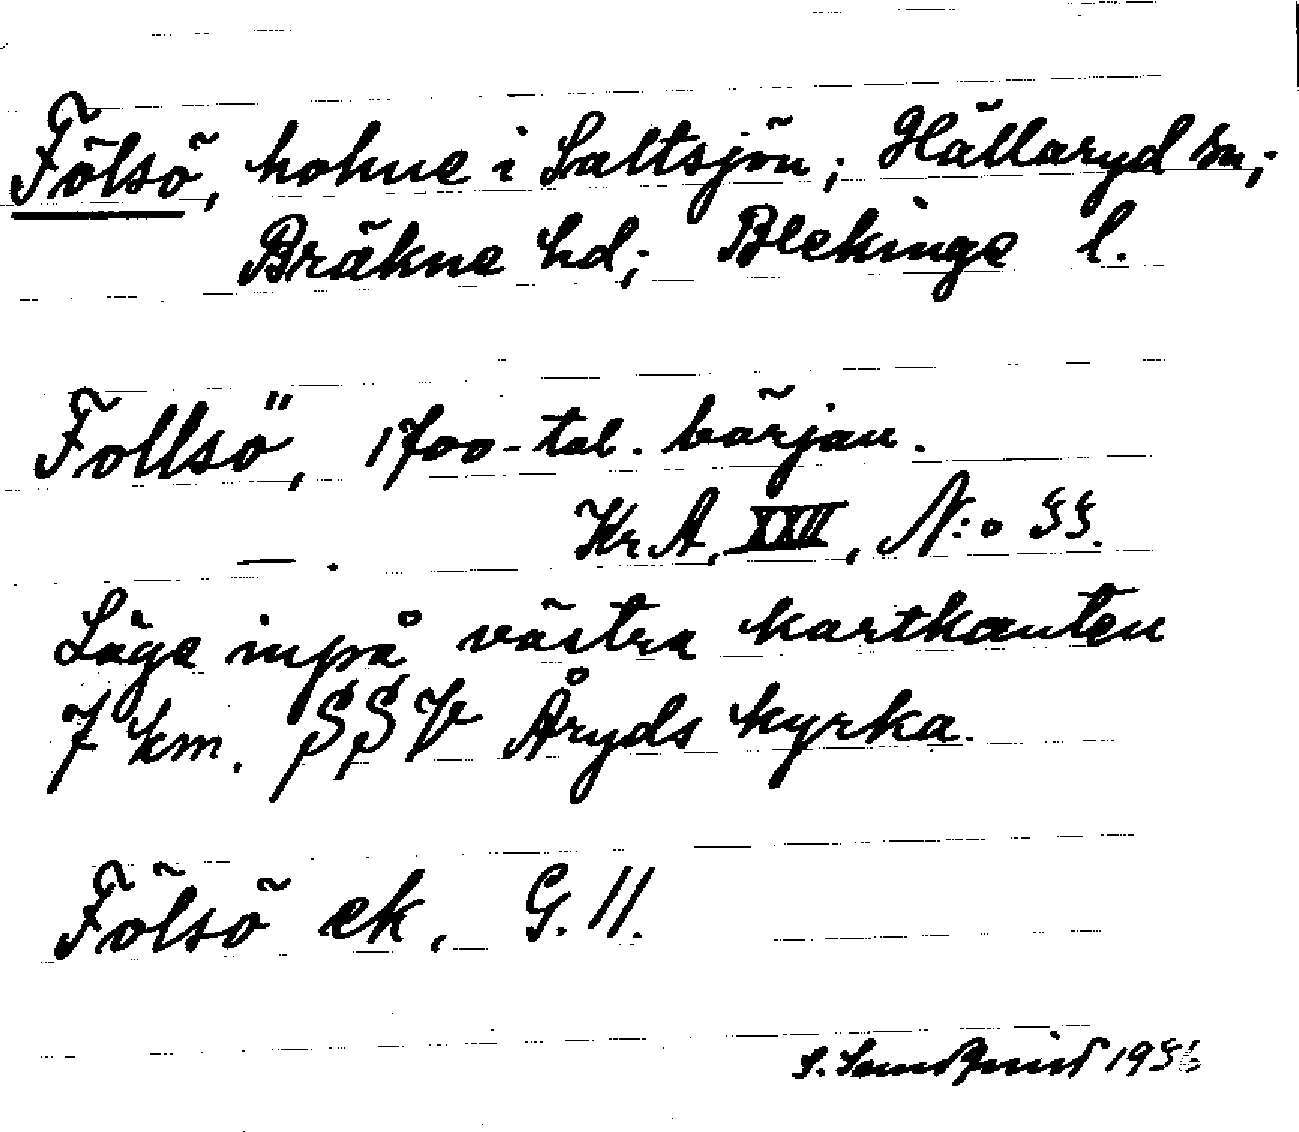 Fölsö, holme i Saltsjön; Hällaryd sn;
Bräkne hd; Blekinge l.
Follsö, 1700-tal. början.
Kr.A. XXII, N:o 55.
— .
Läge inpå västra kartkanten
7 km. SSV Åryds kyrka.
Fölsö ek. G. 11.
S. 1956